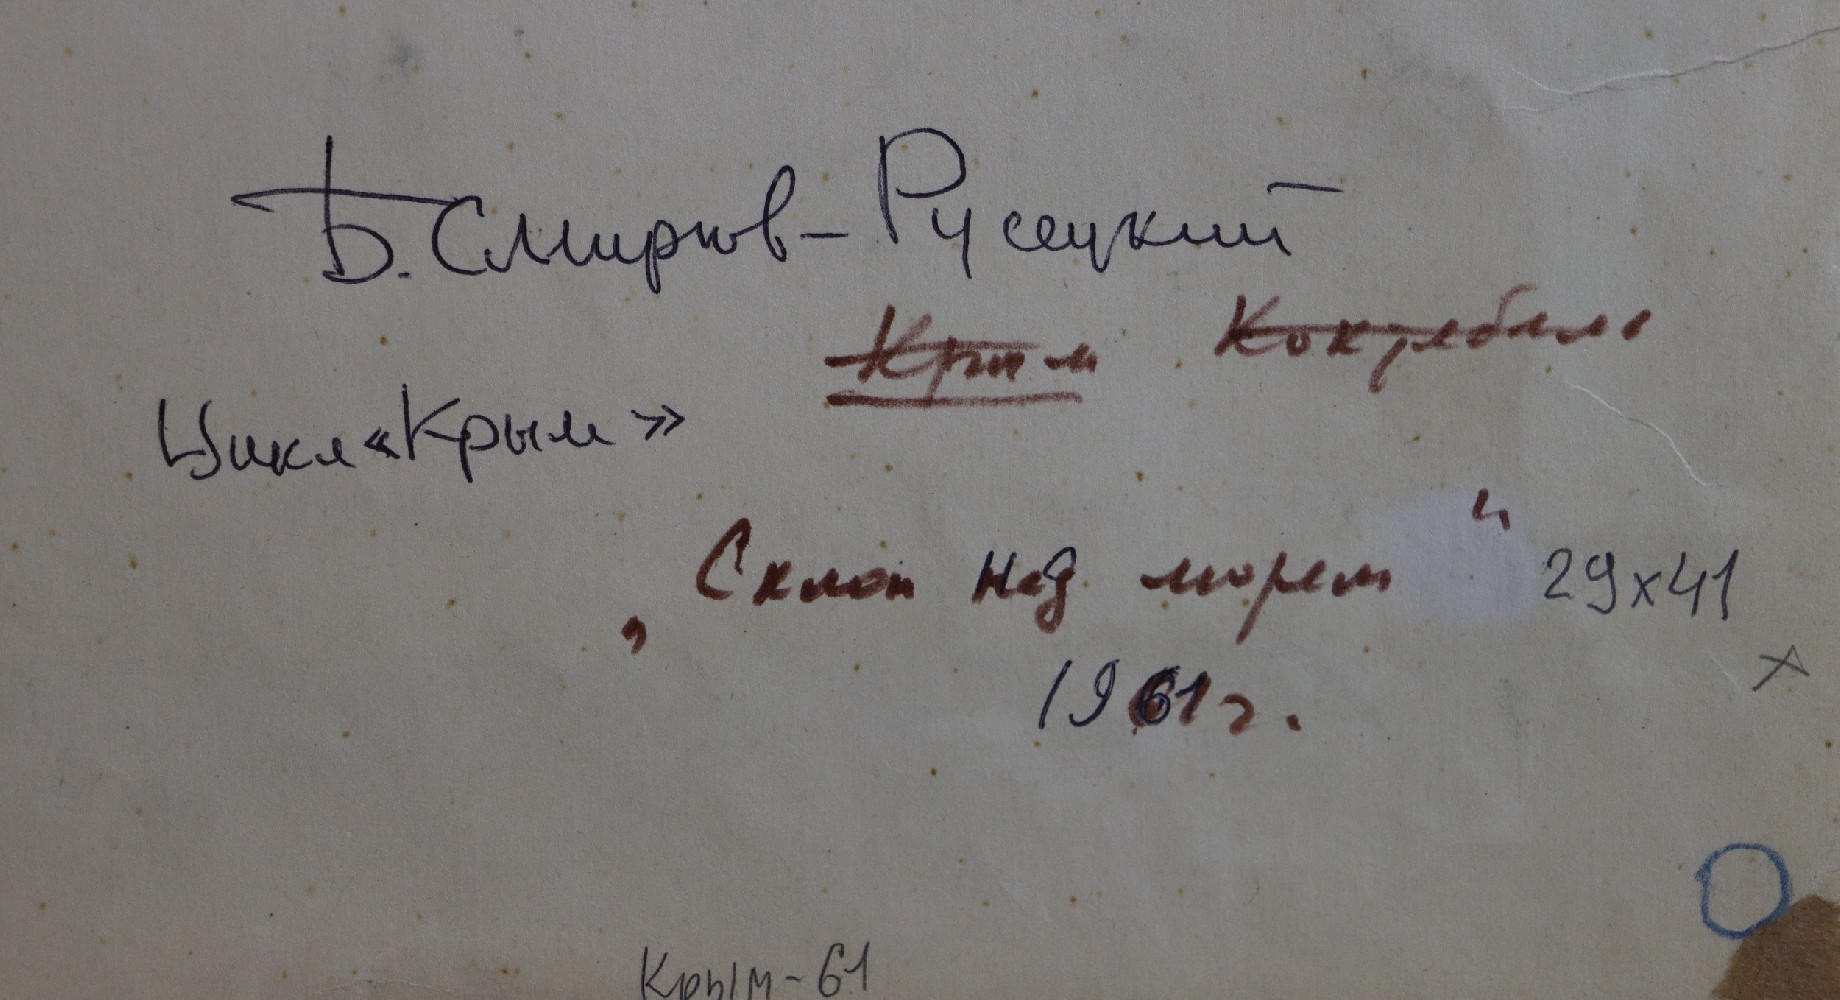 Б. Смирнов-Русецкий
Крым Коктебель
Цикл «Крым»
„Склон над морем“ 29х41
1961 г.
Крым-61